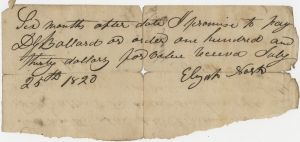 Six months after date I promise to pay
D J Ballard or order one hundred and
thirty dollars for value receivd July
25th 1820
Elijah